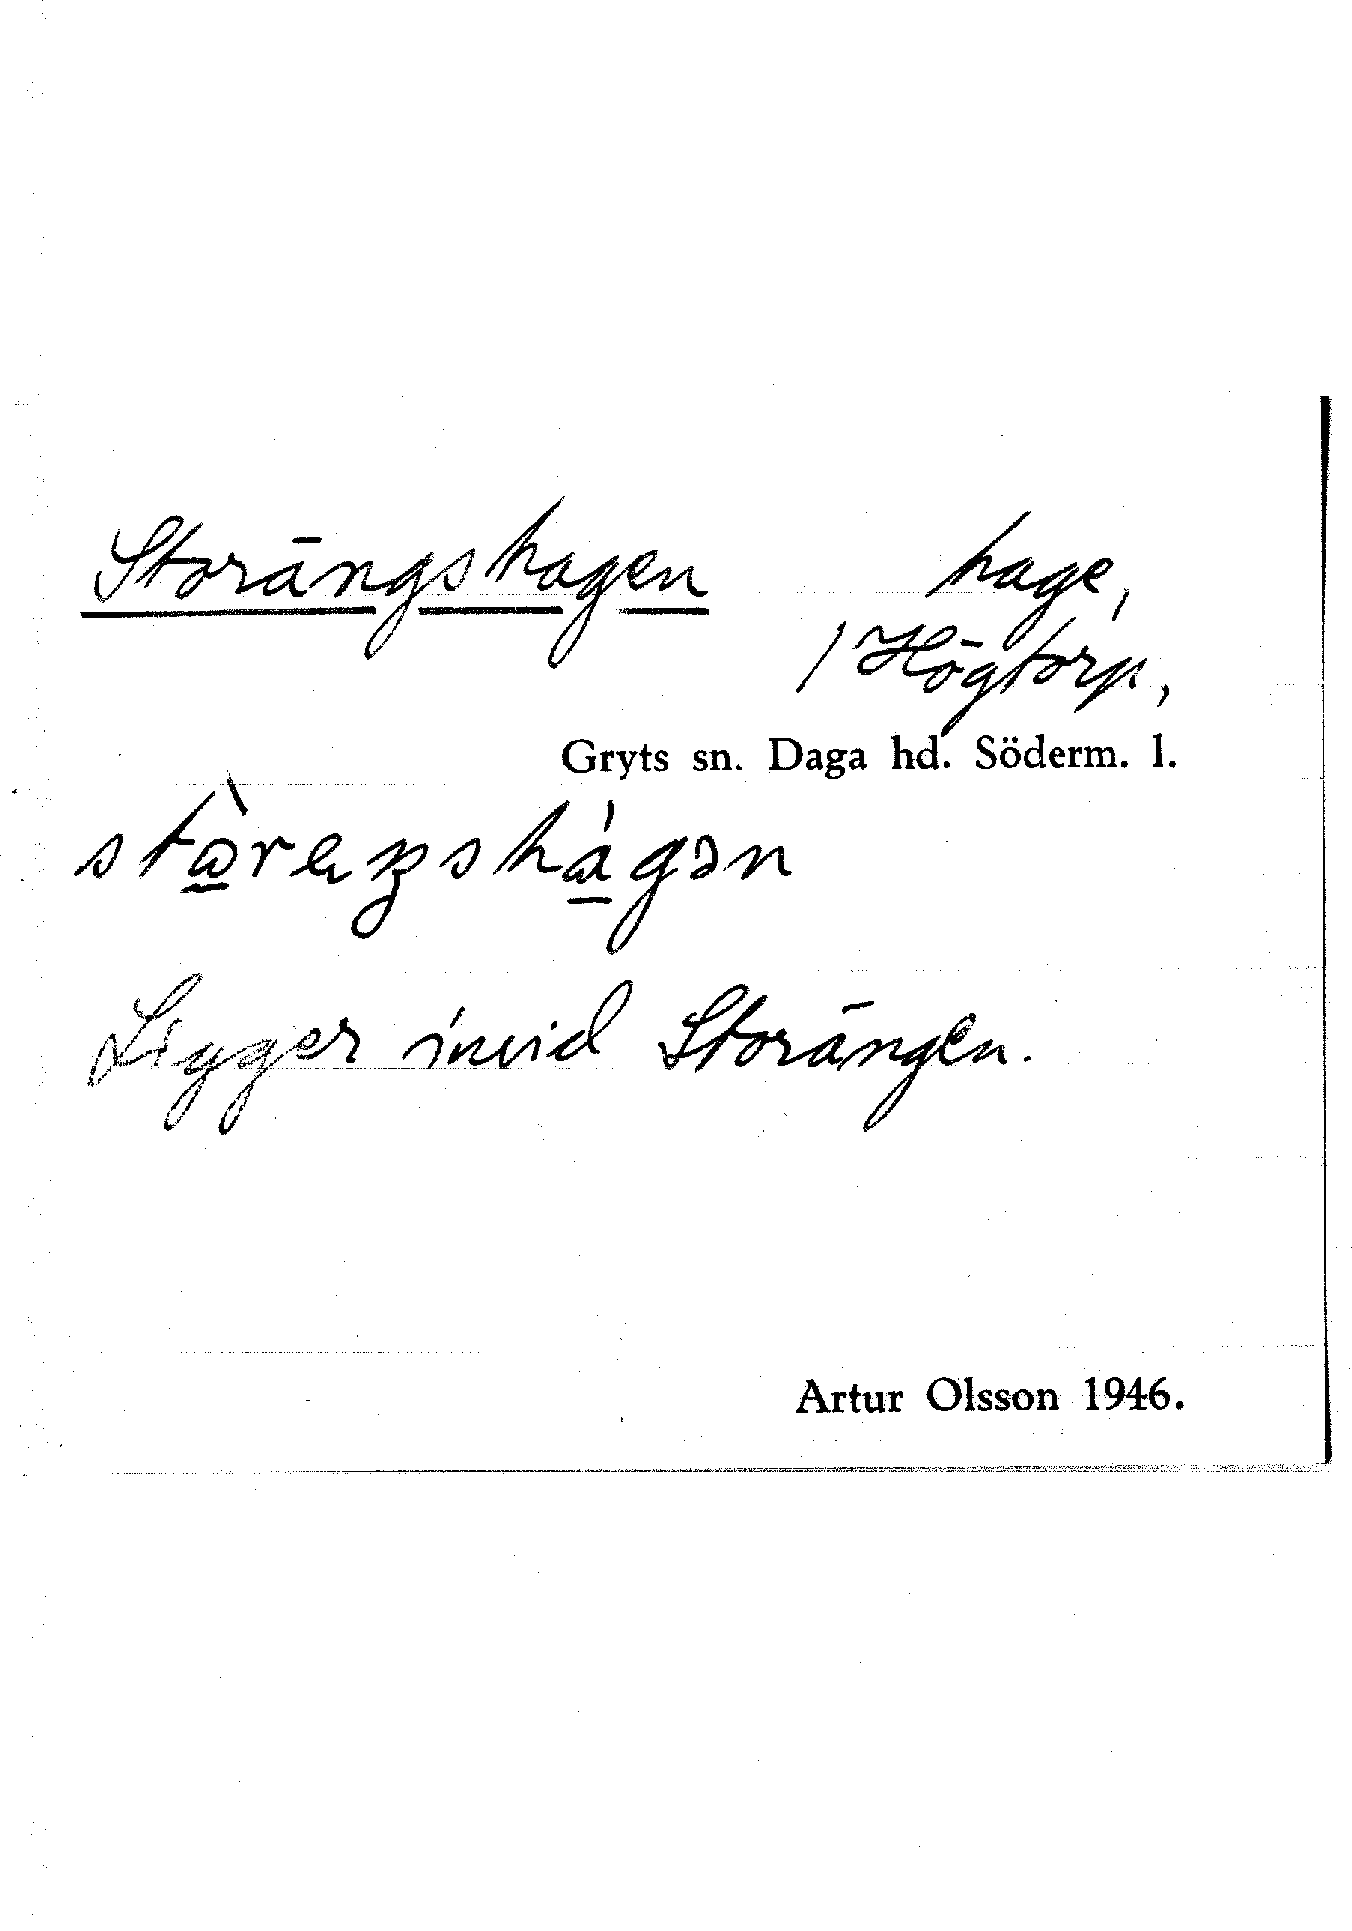 Storängshagen hage,
/ Högtorp,
Gryts sn. Daga hd. Söderm. l.
Ligger invid Storängen.
Artur Olsson 1946.